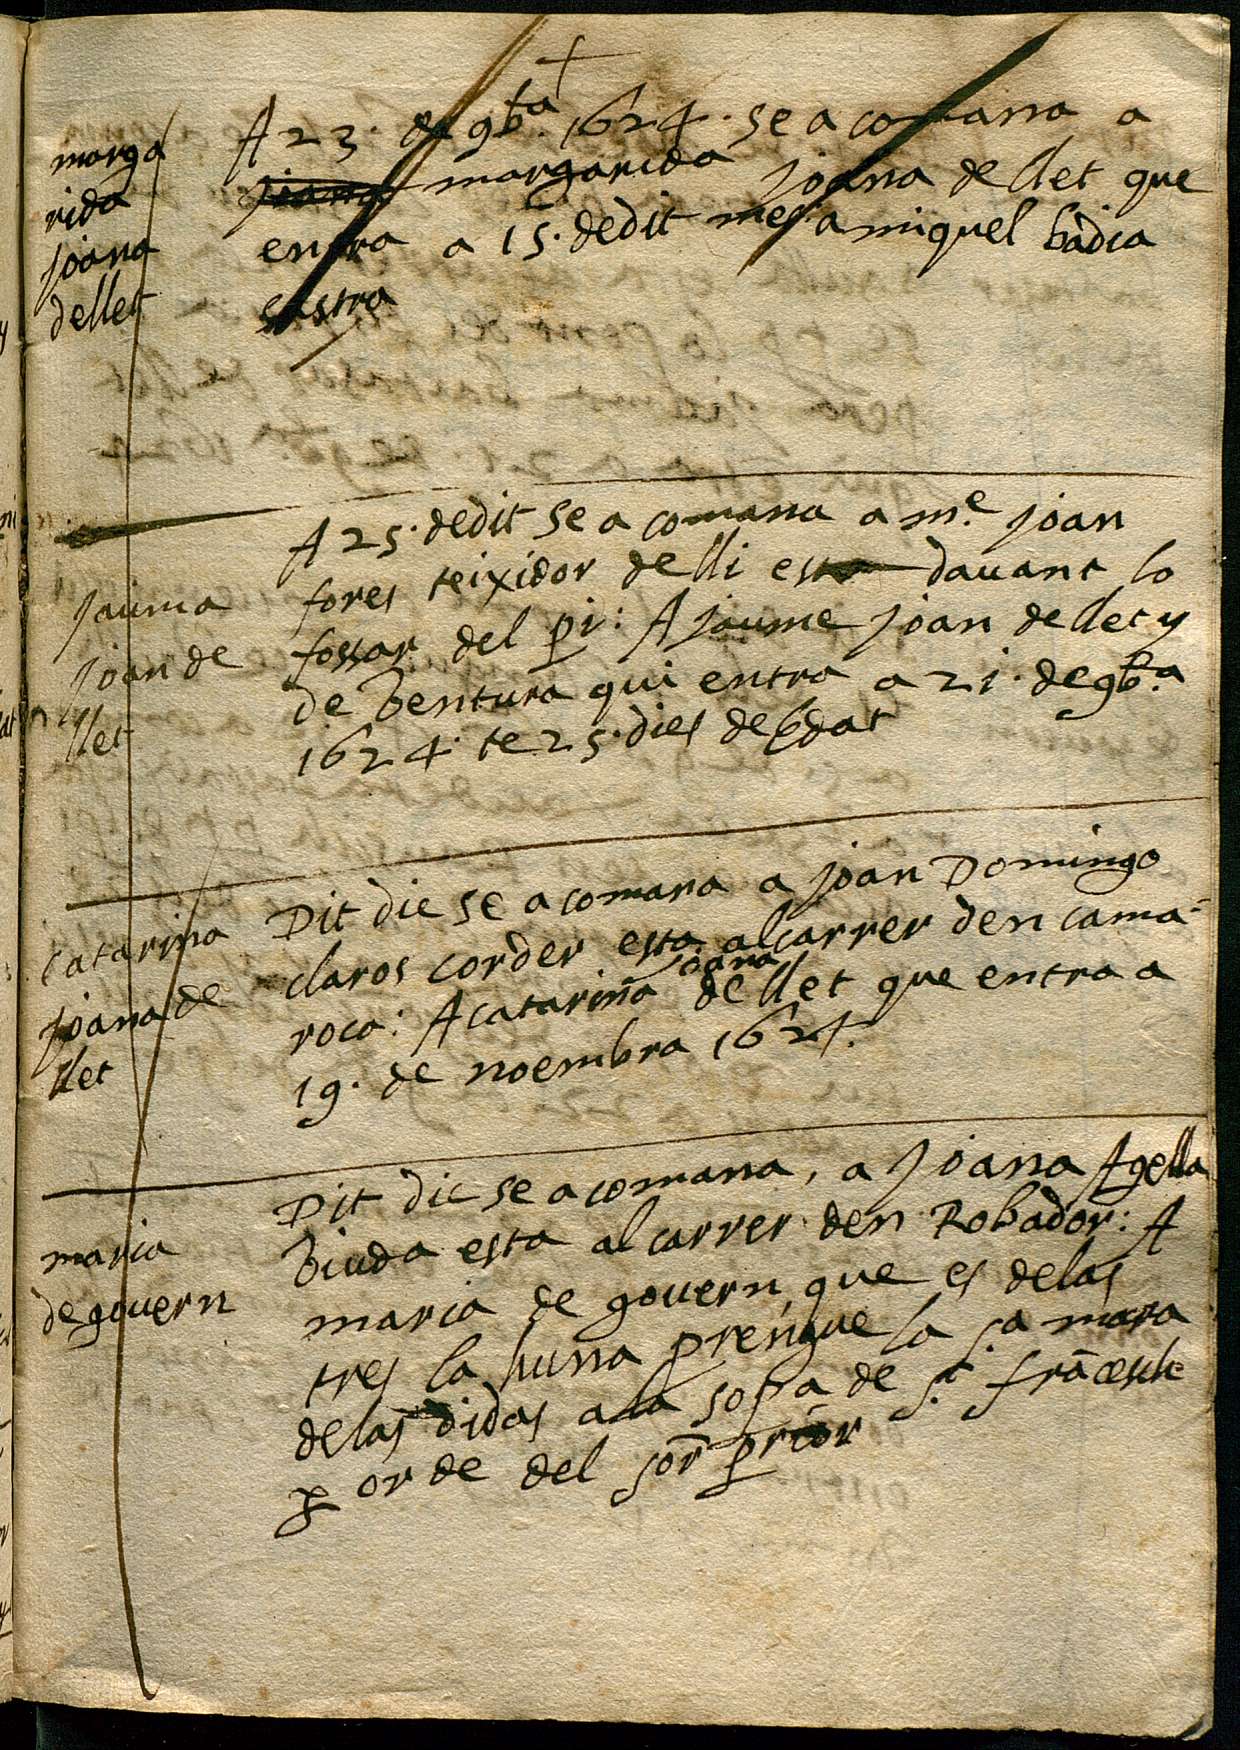 marga
rida
joana
de llet
A 23. de 9bra. 1624. se a comana a
joana margarida joana de llet que
entra a 15. de dit mes. a miquel badia
sastra
jauma
joan de
llet
A 25. de dit se a comana a me. joan
fores teixidor de lli esta dauant lo
fossar del pi: A jaume joan de llet y
de Ventura qui entra a 21. de 9bra.
1624. te 25. dies de edat
Catarina
joana de
llet
Dit die se a comana a joan Domingo
claros corder esta al carrer den cama-
roca: A catarina joana de llet que entra a
19. de noembra 1624.
maria
de gouern
Dit die se a comana, a joana Agella
Viuda esta al carrer den Robador: A
maria de gouern, que es de las
tres la huna prengue la sa. mara
de las didas a la sopa de st. frācesch
p orde del sor prior